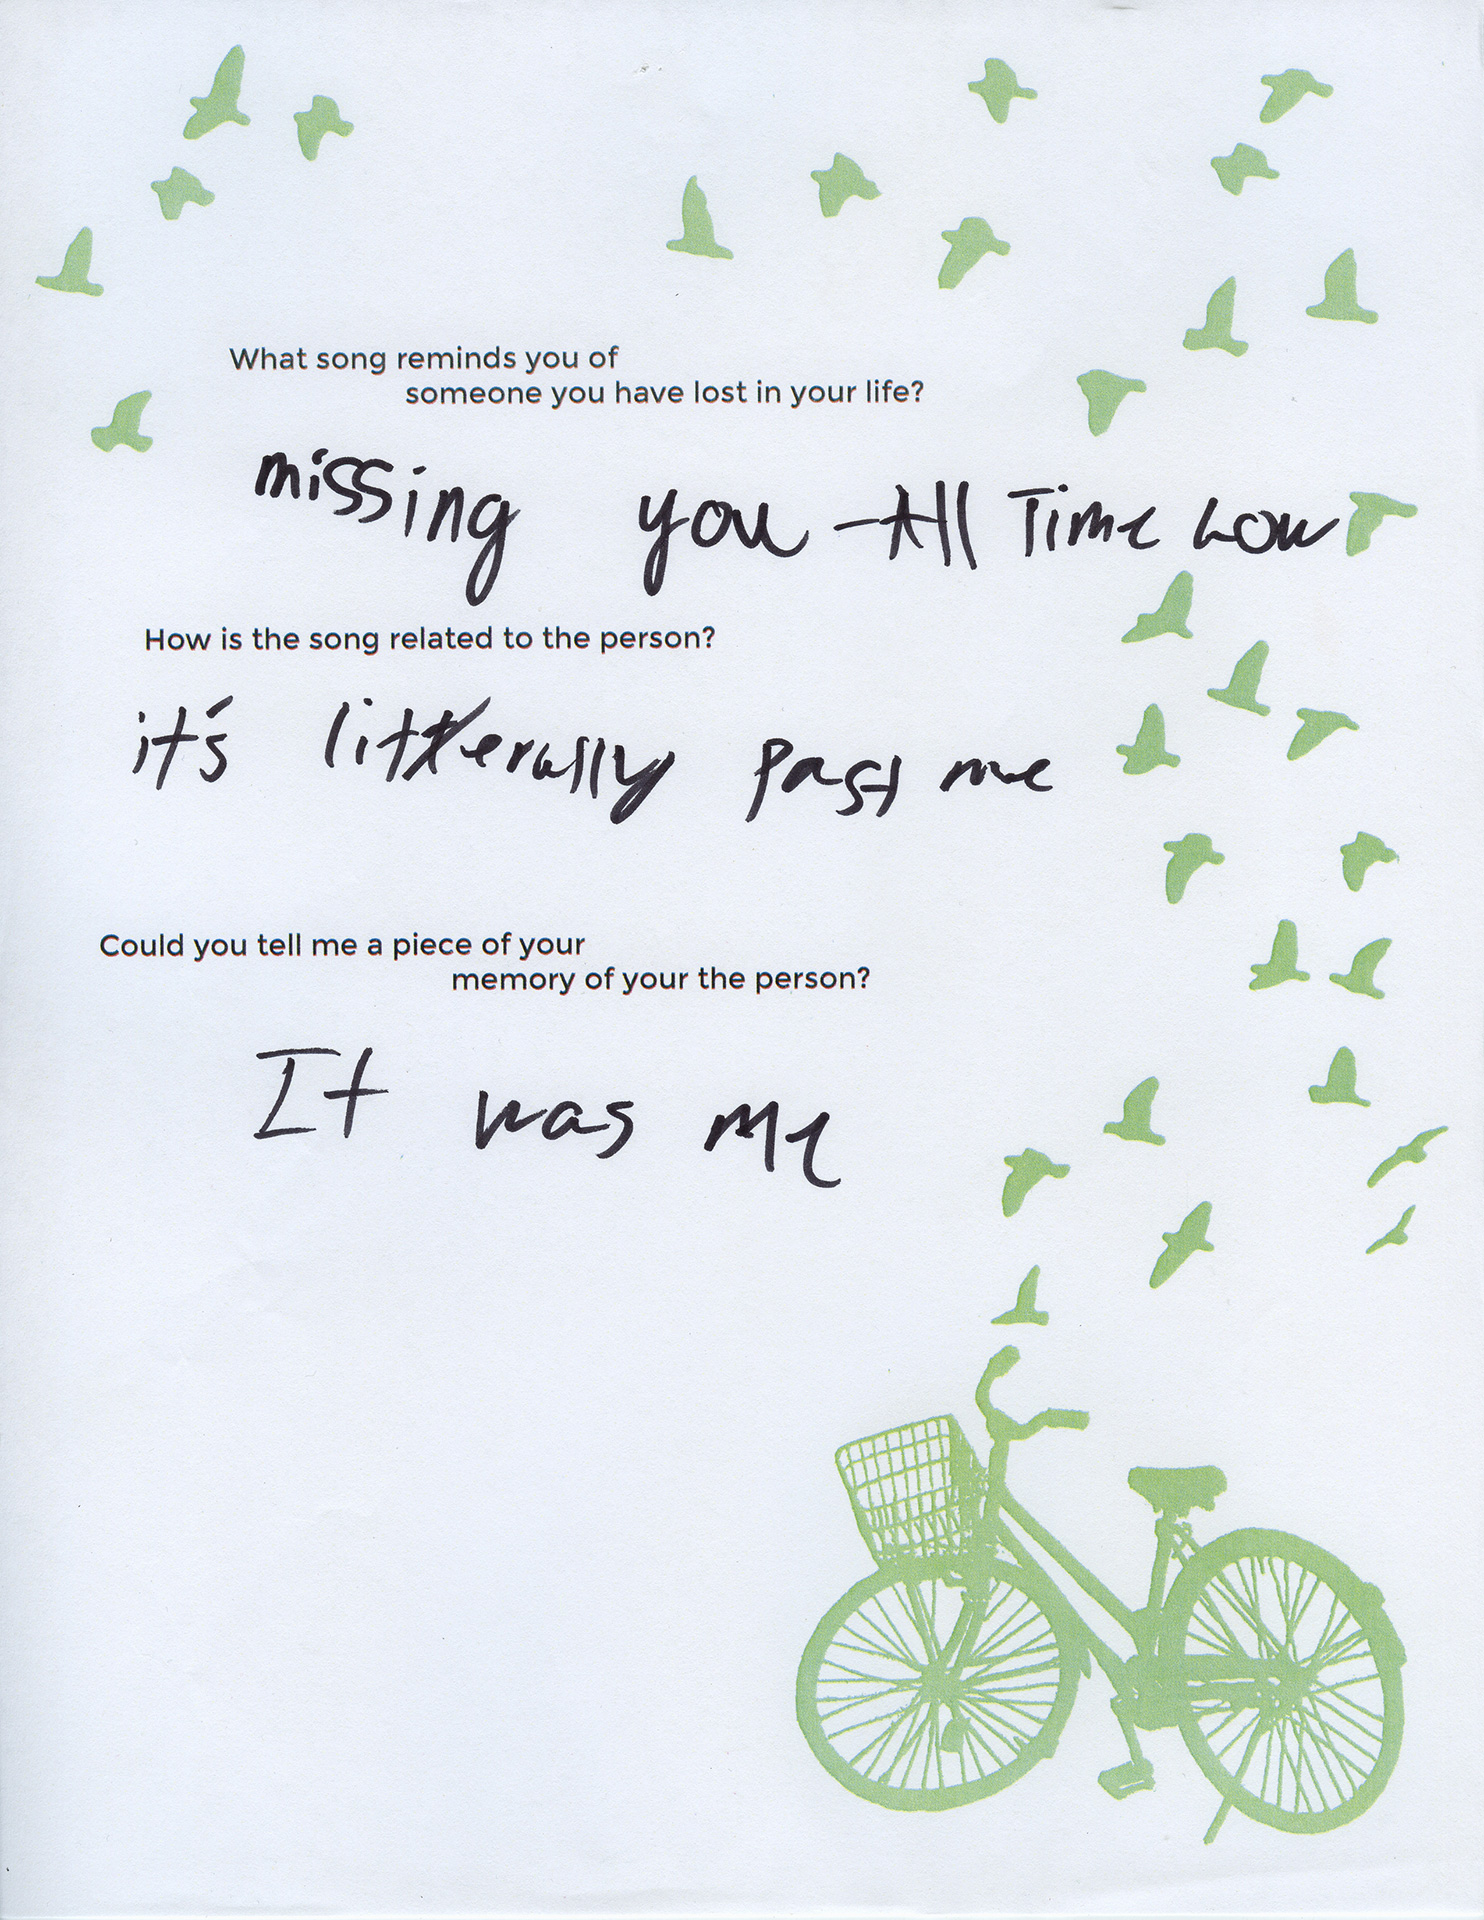 What song reminds you of
someone you have lost in your life?
missing you - All Time Low
How is the song related to the person?
it's litterally past me
Could you tell me a piece of your
memory of your the person?
It was me